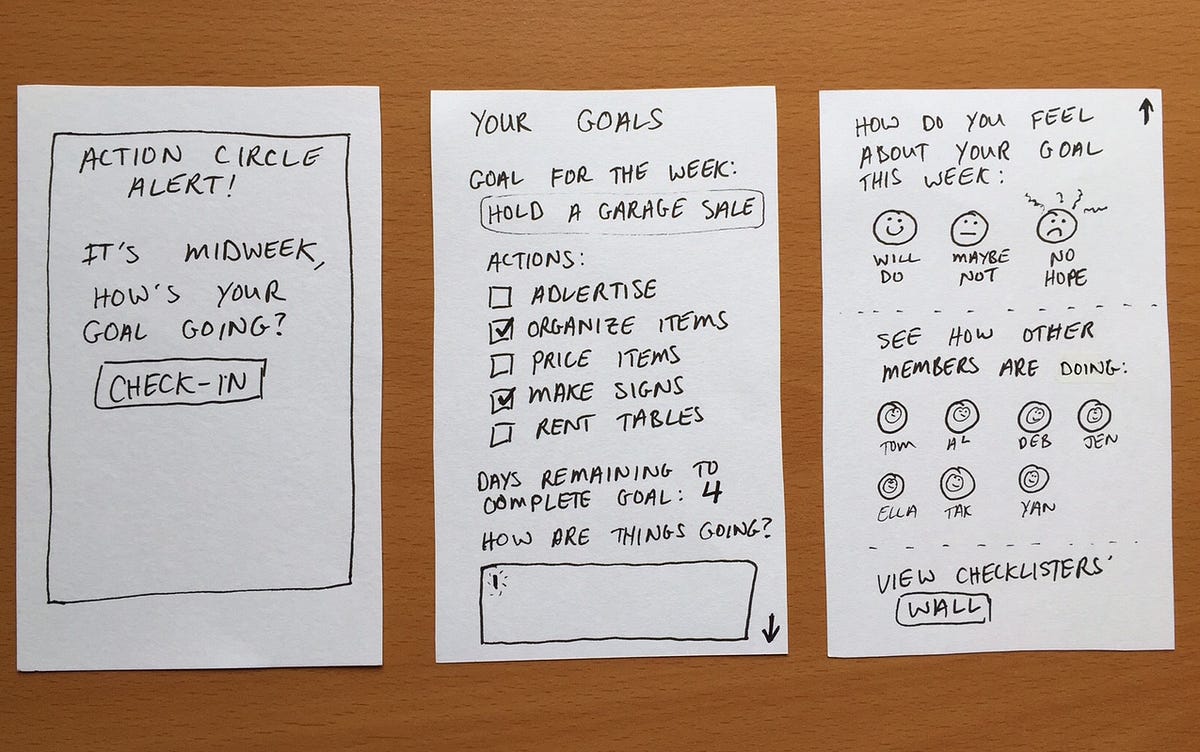 ACTION CIRCLE
ALERT!
IT'S MIDWEEK,
HOW'S YOUR
GOAL GOING?
CHECK-IN
YOUR GOALS
GOAL FOR THE WEEK:
HOLD A GARAGE SALE
ACTIONS:
ADVERTISE
ORGANIZE ITEMS
PRICE ITEMS
MAKE SIGNS
RENT TABLES
DAYS REMAINING TO
COMPLETE GOAL: 4
HOW ARE THINGS GOING?
HOW DO YOU FEEL
ABOUT YOUR GOAL
THIS WEEK:
WILL DO
MAYBE NOT
NO HOPE
SEE HOW OTHER
MEMBERS ARE DOING:
TOM AL DEB JEN
ELLA TAK YAN
VIEW CHECKLISTERS'
WALL